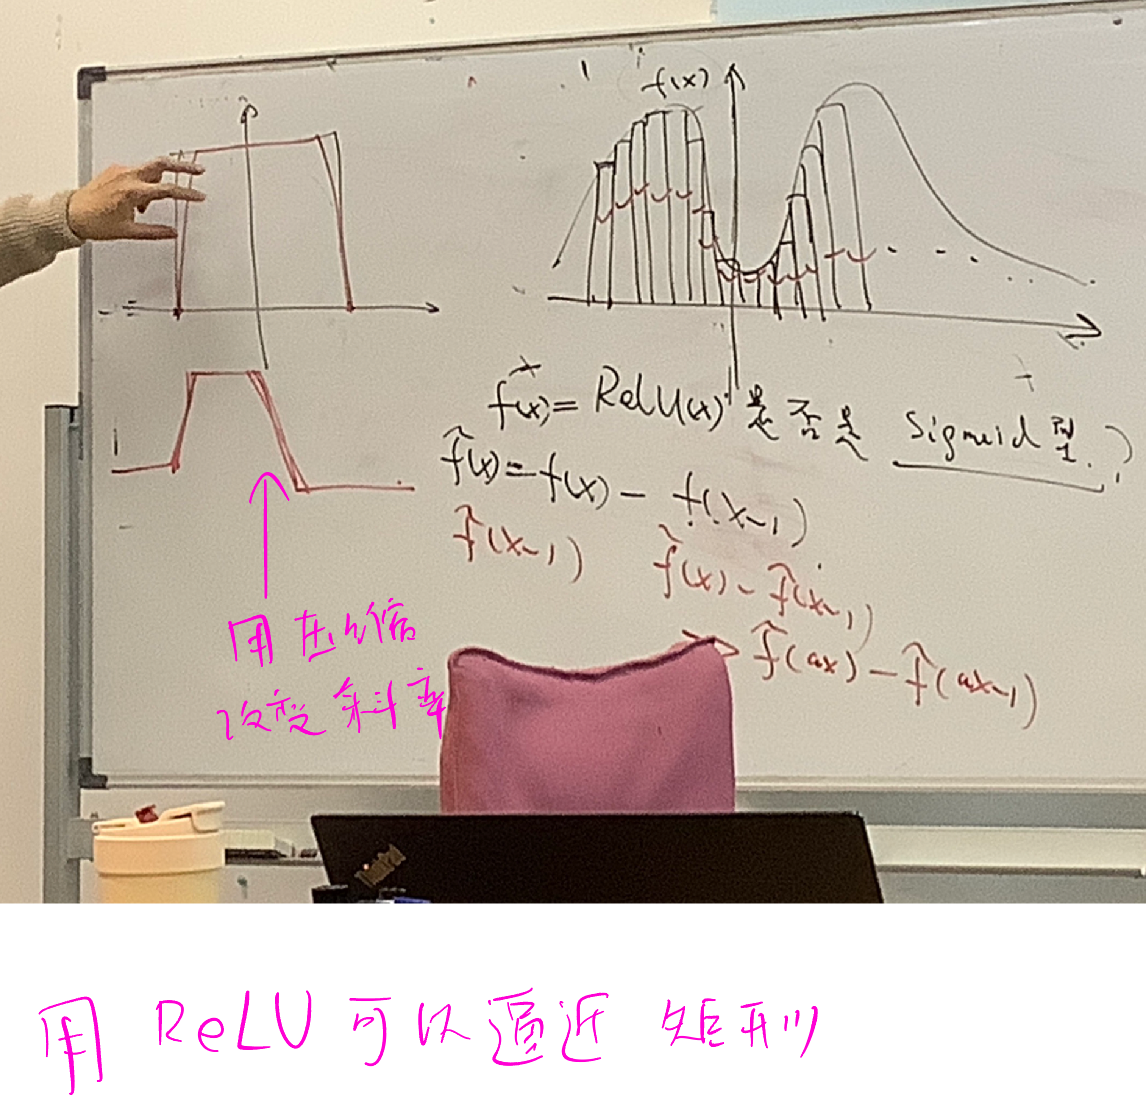 f(x)
x
f(x) = ReLU(x) 是否是 Sigmoid 型?
f̃(x) = f(x) - f(x-1)
f̃(x-1) f̃(x) - f̃(x-1)
⇒ f̃(ax) - f̃(ax-1)
用压缩
改变斜率
ThinkPad
用 ReLU 可以逼近 矩形